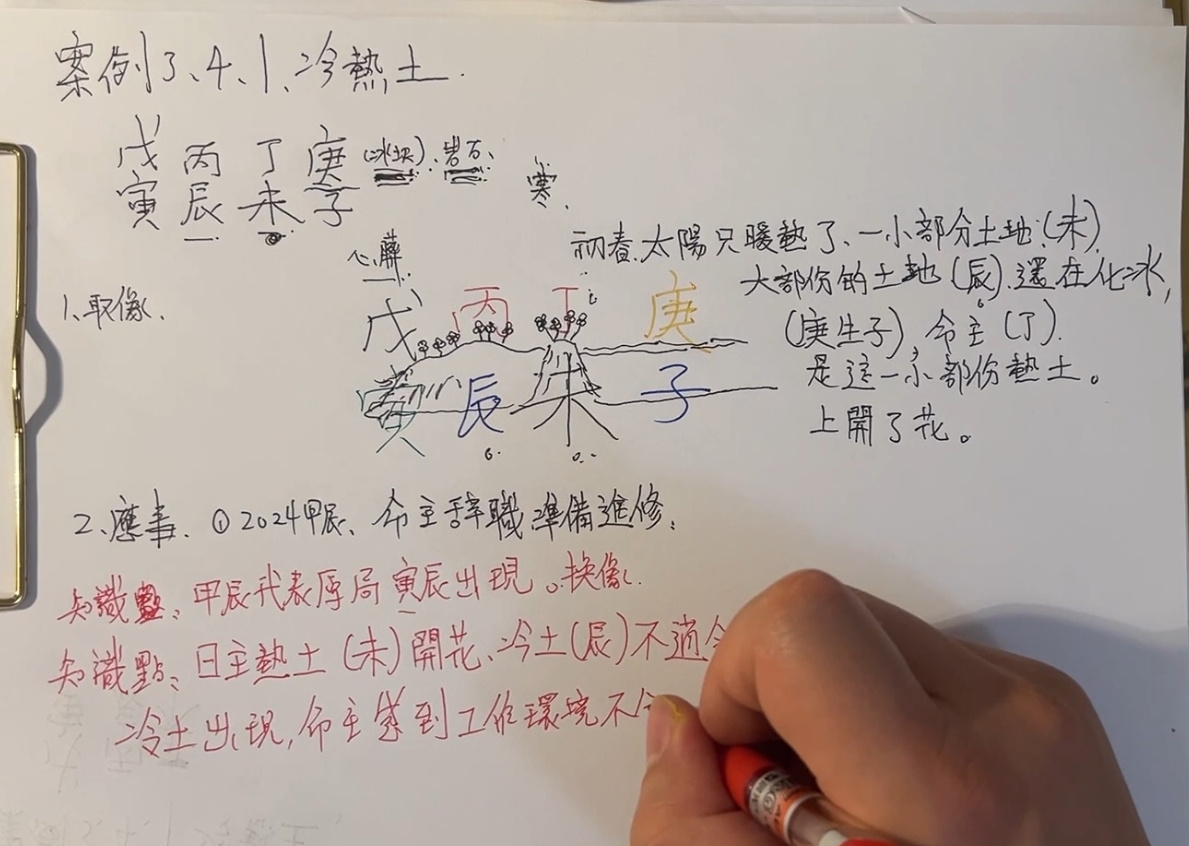 案例3、4、1、冷熱土.
戊 丙 丁 庚 (冰块)、岩石、
寅 辰 未 子
寒.
心臟
初春.太陽只暖熱了、一小部分土地(未).
大部份的土地(辰).還在化冰,
(庚生子), 命主(丁).
是這一小部份熱土。
上開了花。
1、取像.
戊 丙 丁 庚
寅 辰 未 子
2、應事. ①2024甲辰、命主辞職準備進修;
知識點: 甲辰代表原局寅辰出現。換像.
知識點: 日主熱土(未)開花、冷土(辰)不適合
冷土出現,命主感到工作環境不